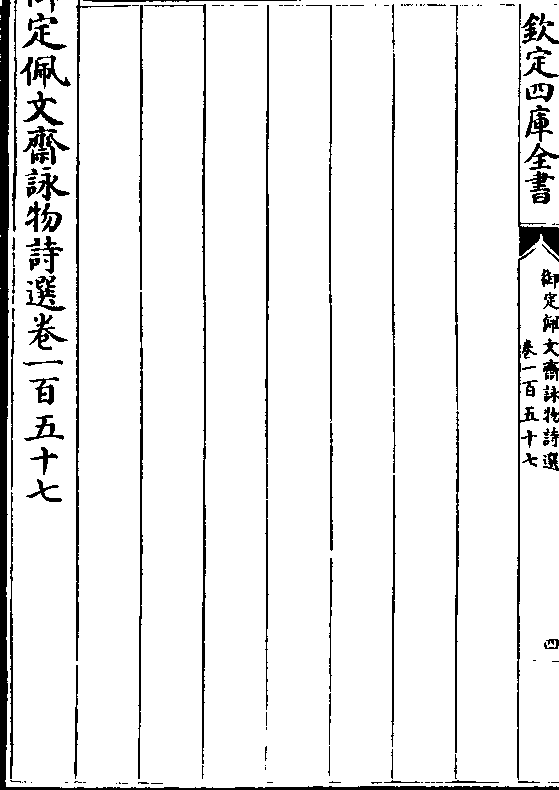 欽定四庫全書
御定佩文齋詠物詩選
卷一百五十七
四
御定佩文齋詠物詩選卷一百五十七